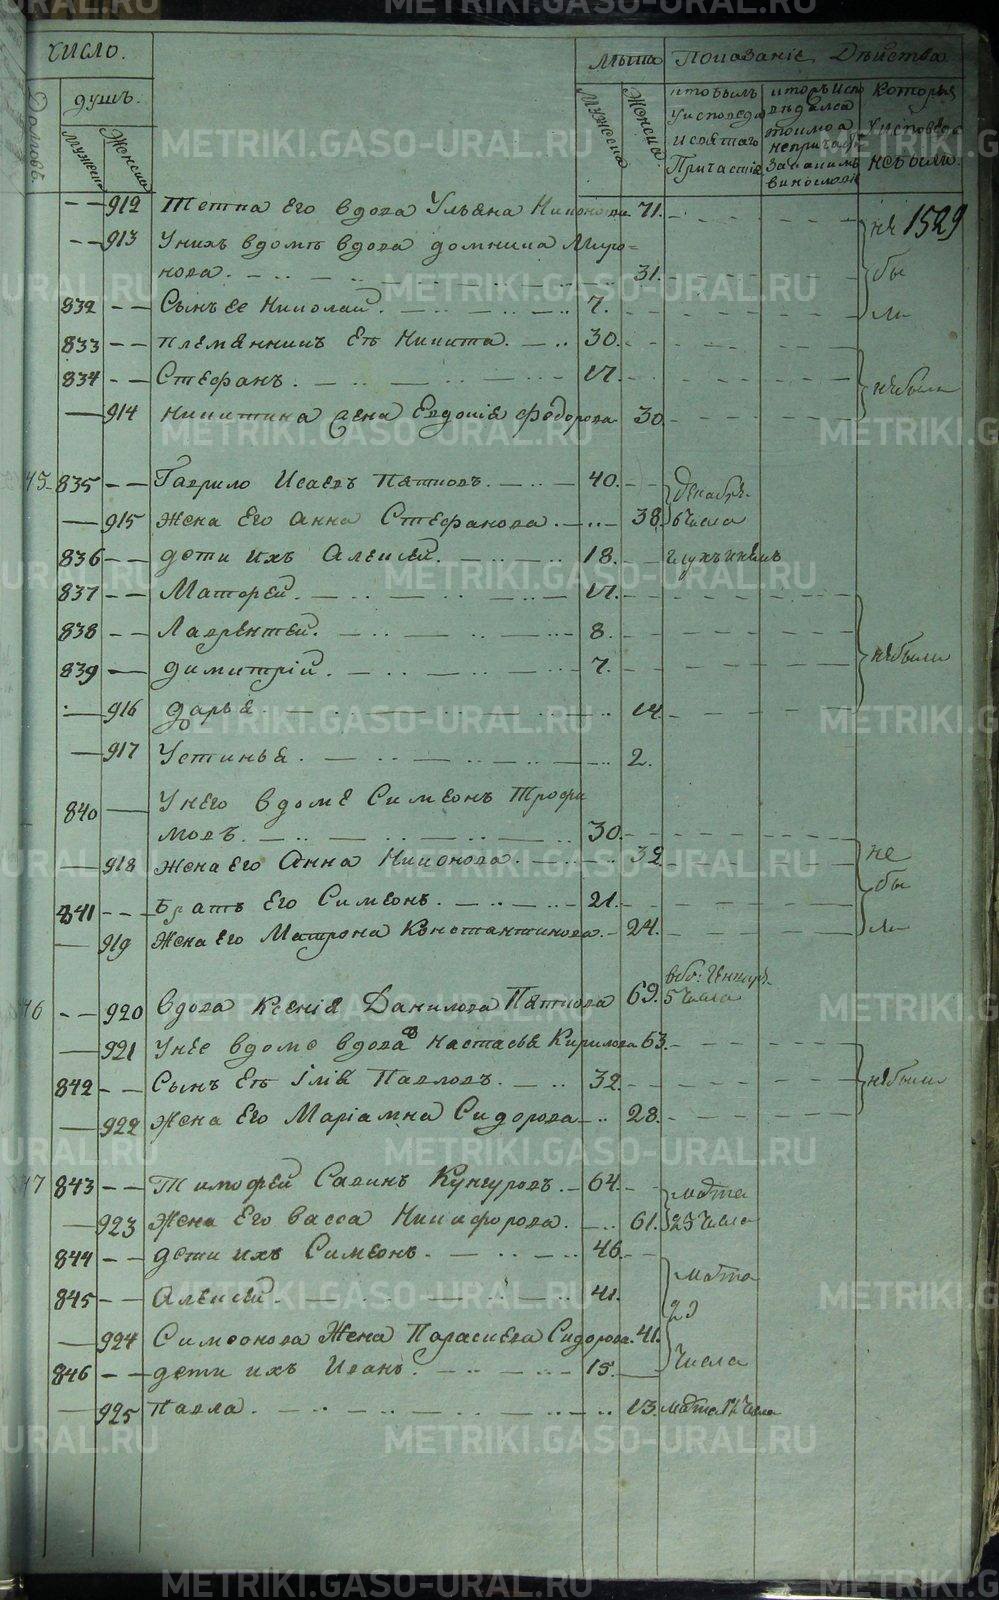 число.
Домовъ.
душъ.
Мужеска
Женска
Лѣта
Мужеска
Женска
Показаніе Дѣйства
кто былъ
У исповеди
И святаго
Причастія
и кто исповедался
токмо а
не причаст.
За каким
винословіем
Которыя
У исповеди
не были.
1529
912 Тетка Его вдова Ульяна Никонова 71.
913 У нихъ вдомѣ вдова домника Миро=
нова. 31.
832 Сынъ ее Николай. 7.
не бы ли
833 племянникъ Еѣ Никита. 30.
834 Стефанъ. 17.
914 Никитина Жена Евдокія Федорова 30.
не были
45. 835 Гаврило Исаевъ Пятковъ. 40.
915 Жена Его Анна Стефанова. 38.
Декабря
6 Числа
836 дети ихъ Алексей. 18.
837 Матфей. 17.
838 Лаврентей. 8.
839 димитрій. 7.
916 дарья. 14.
не были
917 Устинья. 2.
840 У него вдоме Симеонъ Трофи
мовъ. 30.
918 Жена Его Анна Никонова. 32.
841 братъ Его Симеонъ. 21.
919 Жена Его Матрона Константинова. 24.
не бы ли
46 920 Вдова Ксенія Данилова Пяткова 69.
5 Числа
921 У нее вдоме вдова Настасья Кирилова 63.
842 Сынъ Еѣ Илія Павловъ. 32.
922 Жена Его Маріамна Сидорова 28.
не были
47 843 Тимофей Савинъ Кунгуровъ. 64.
923 Жена Его васса Никифорова. 61.
марта
23 Числа
844 дети ихъ Симеонъ. 46.
845 Алексей. 41.
924 Симеонова Жена Параскева Сидорова. 41.
846 дети ихъ Иванъ. 15.
марта
23
Числа
925 Павла. 13. марта 12 Числа
METRIKI.GASO-URAL.RU